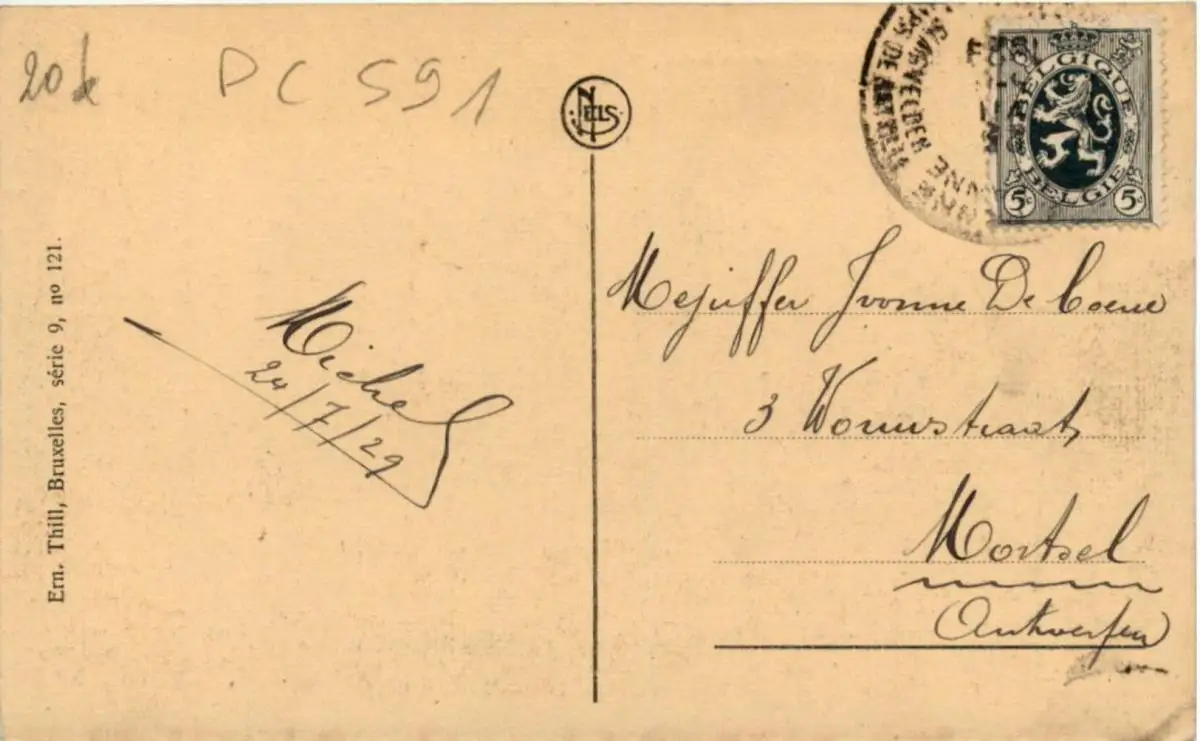 20 k
PC 591
NELS
BELGIQUE
BELGIE
5c 5c
Ern. Thill, Bruxelles, série 9, nº 121.
Michel
24/7/29
Mejuffer Ivonne De Coene
3 Wouwstraat
Mortsel
Antwerpen